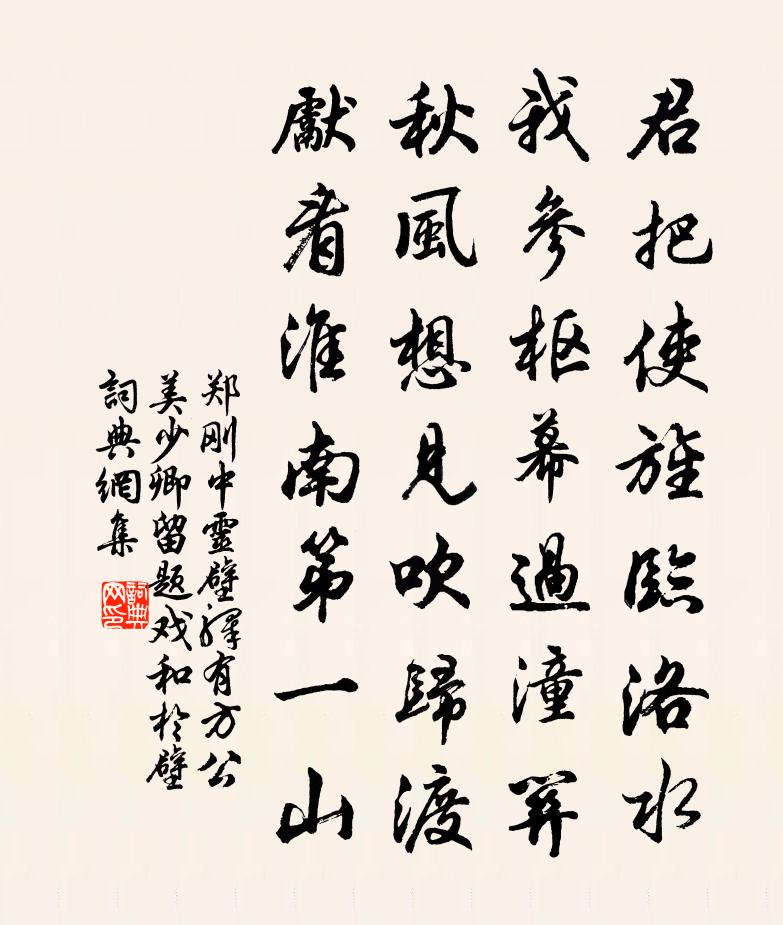 君把使旌臨洛水
我參枢幕過潼關
秋風想見吹歸渡
獻看淮南第一山
郑刚中靈壁驛有方公
美少卿留题戏和於壁
詞典網集
詞典网印